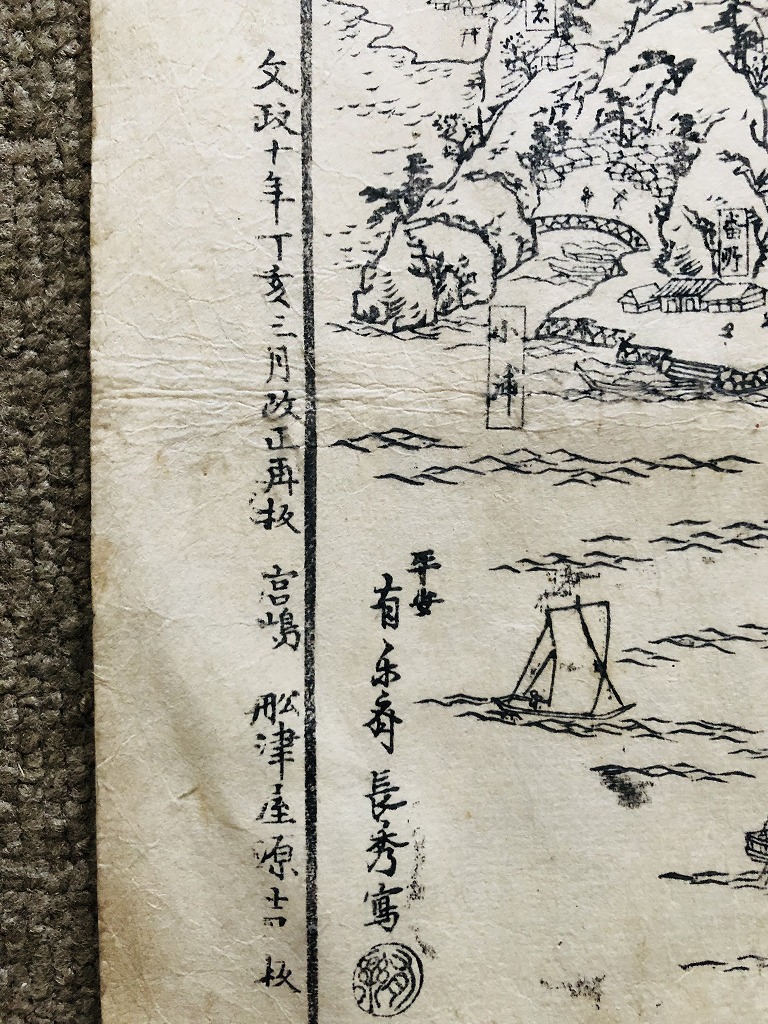 番所
小浦
平安
有樂齋長秀寫
文政十年丁亥三月改正再板 宮嶋 舩津屋源吉板